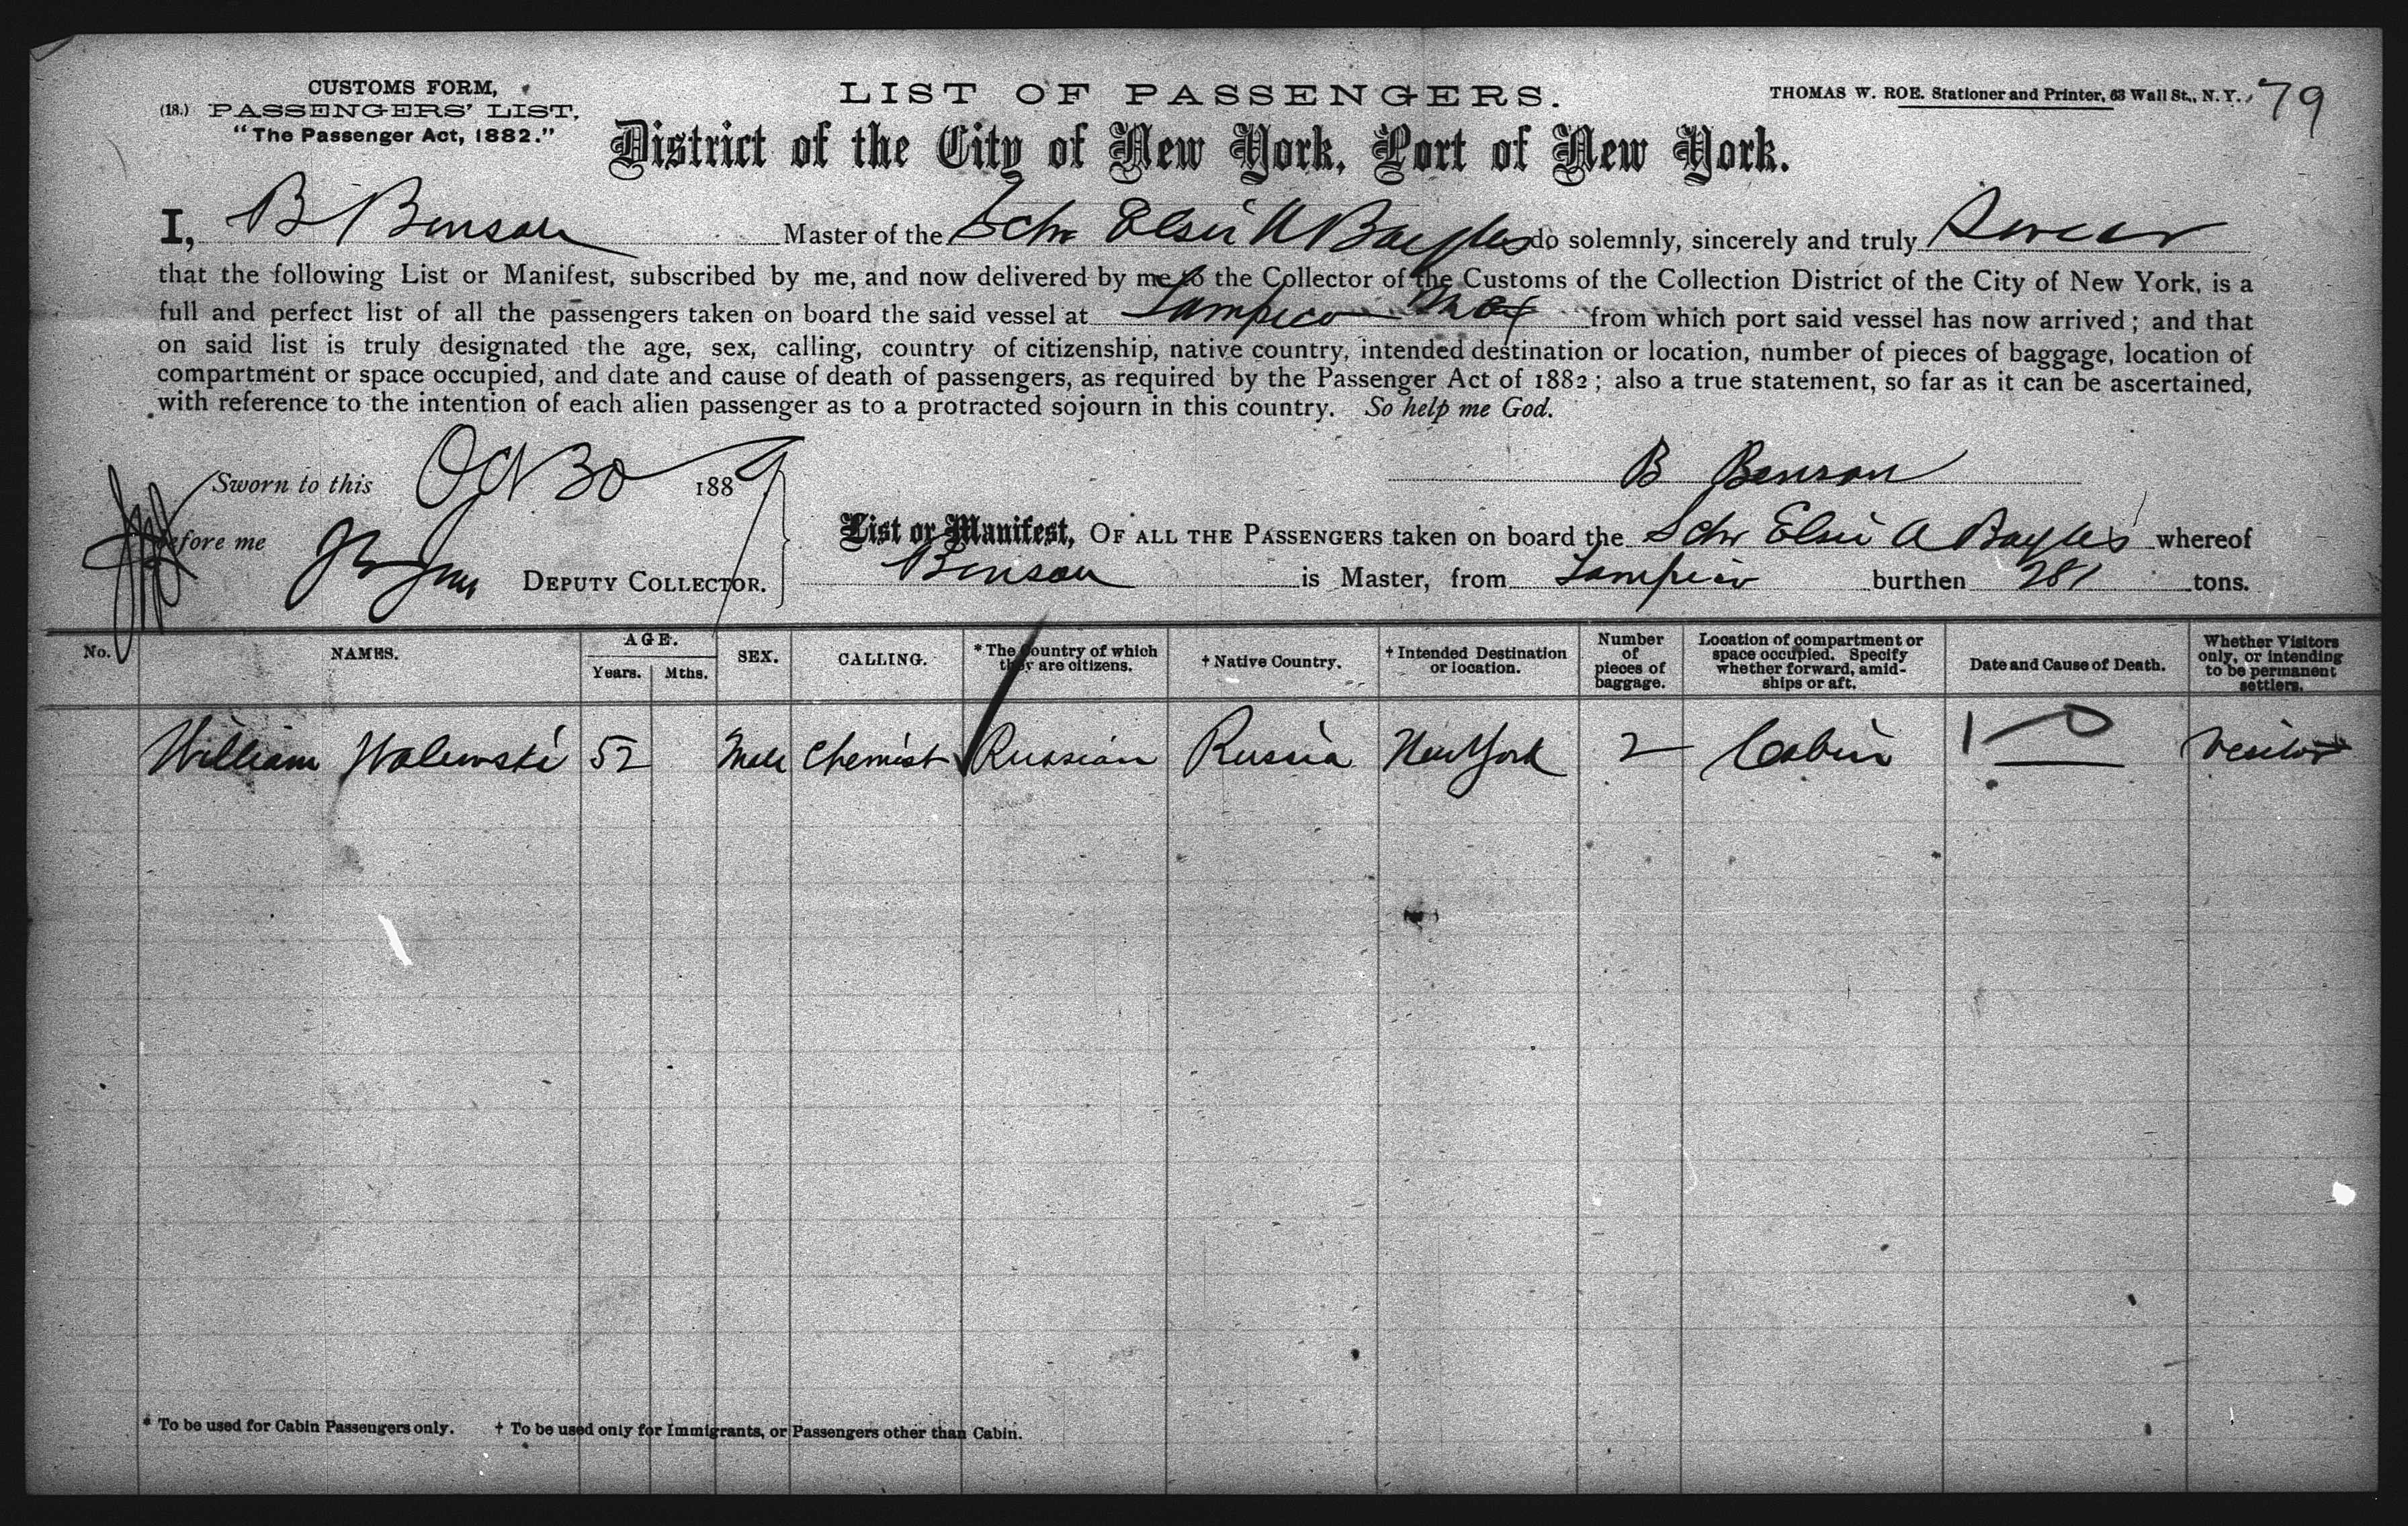 CUSTOMS FORM,
(18.) PASSENGERS' LIST.
"The Passenger Act, 1882."
LIST OF PASSENGERS.
THOMAS W. ROE. Stationer and Printer, 63 Wall St., N.Y.
79
District of the City of New York, Port of New York.
I, B Benson Master of the Schr Elsie A Bayles do solemnly, sincerely and truly Swear
that the following List or Manifest, subscribed by me, and now delivered by me to the Collector of the Customs of the Collection District of the City of New York, is a
full and perfect list of all the passengers taken on board the said vessel at Tampico Mex from which port said vessel has now arrived; and that
on said list is truly designated the age, sex, calling, country of citizenship, native country, intended destination or location, number of pieces of baggage, location of
compartment or space occupied, and date and cause of death of passengers, as required by the Passenger Act of 1882; also a true statement, so far as it can be ascertained,
with reference to the intention of each alien passenger as to a protracted sojourn in this country. So help me God.
Sworn to this Oct 30 1889
B Benson
before me
DEPUTY COLLECTOR.
List or Manifest, OF ALL THE PASSENGERS taken on board the Schr Elsie A Bayles whereof
Benson is Master, from Tampico burthen 281 tons.
No. NAMES. AGE. Years. Mths. SEX. CALLING. * The Country of which they are citizens. † Native Country. † Intended Destination or location. Number of pieces of baggage. Location of compartment or space occupied. Specify whether forward, amidships or aft. Date and Cause of Death. Whether Visitors only, or intending to be permanent settlers.
William Walewski 52 Male Chemist Russian Russia New York 2 Cabin Visitor
* To be used for Cabin Passengers only. † To be used only for Immigrants, or Passengers other than Cabin.